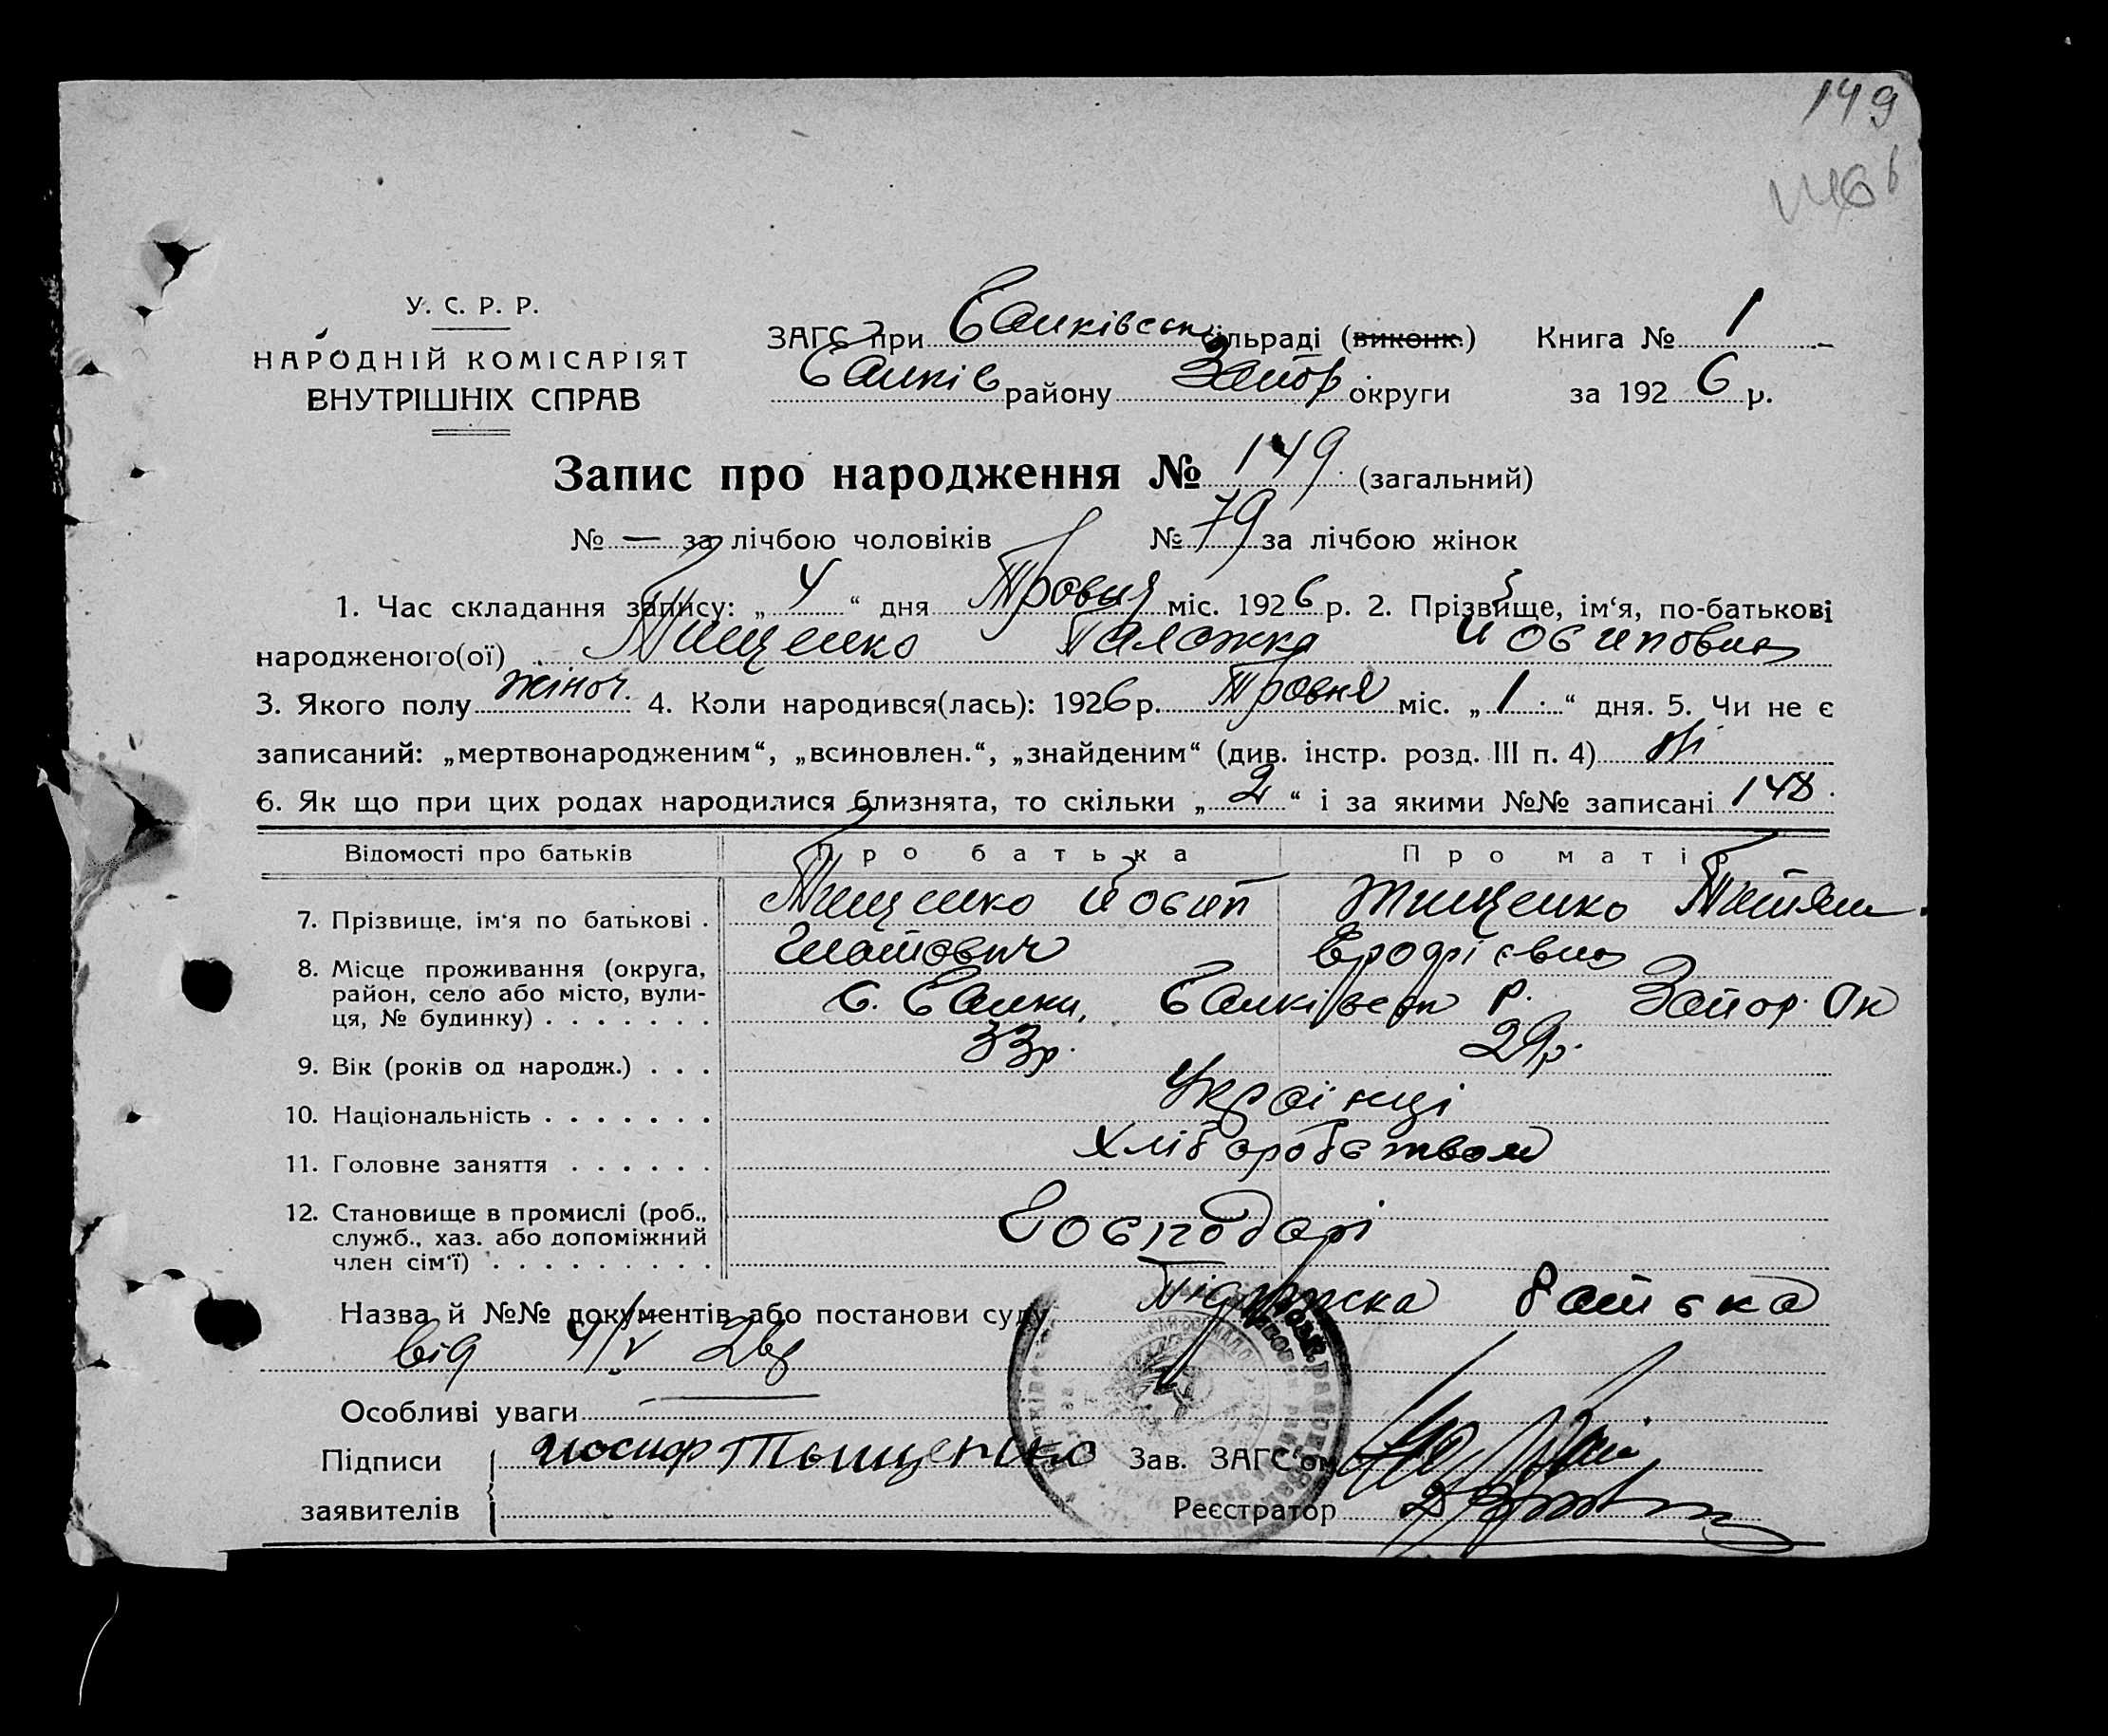 149
У. С. Р. Р.
НАРОДНІЙ КОМІСАРІЯТ
ВНУТРІШНІХ СПРАВ
ЗАГС при Балківськ сільраді (виконк.) Книга № 1
Балків району Запор округи за 1926 р.
Запис про народження № 149 (загальний)
№ — за лічбою чоловіків № 79 за лічбою жінок
1. Час складання запису: „4“ дня Травня міс. 1926 р. 2. Прізвище, ім‘я, по-батькові
народженого(ої) Тищенко Палажка Йосиповна
3. Якого полу жіноч. 4. Коли народився(лась): 1926 р. Травня міс. „1“ дня. 5. Чи не є
записаний: „мертвонародженим“, „всиновлен.“, „знайденим“ (див. інстр. розд. III п. 4) ні
6. Як що при цих родах народилися близнята, то скільки „2“ і за якими №№ записані 148.
Відомості про батьків Про батька Про матір
7. Прізвище, ім‘я по батькові . Тищенко Йосип Тищенко Татяна
Гнатович Ерофієвна
8. Місце проживання (округа, район, село або місто, вулиця, № будинку) . . . . . . . с. Балки, Балківськ р. Запор. Ок
9. Вік (років од народж.) . . . 33р. 29р.
10. Національність . . . . . . . Українці
11. Головне заняття . . . . . . Хліборобством
12. Становище в промислі (роб., служб., хаз. або допоміжний член сім‘ї) . . . . . . . . . Господарі
Назва й №№ документів або постанови суду Підписка батька
від 4/V 26р
Особливі уваги
Підписи Иосиф Тыщенко Зав. ЗАГС‘ом
заявителів Реєстратор